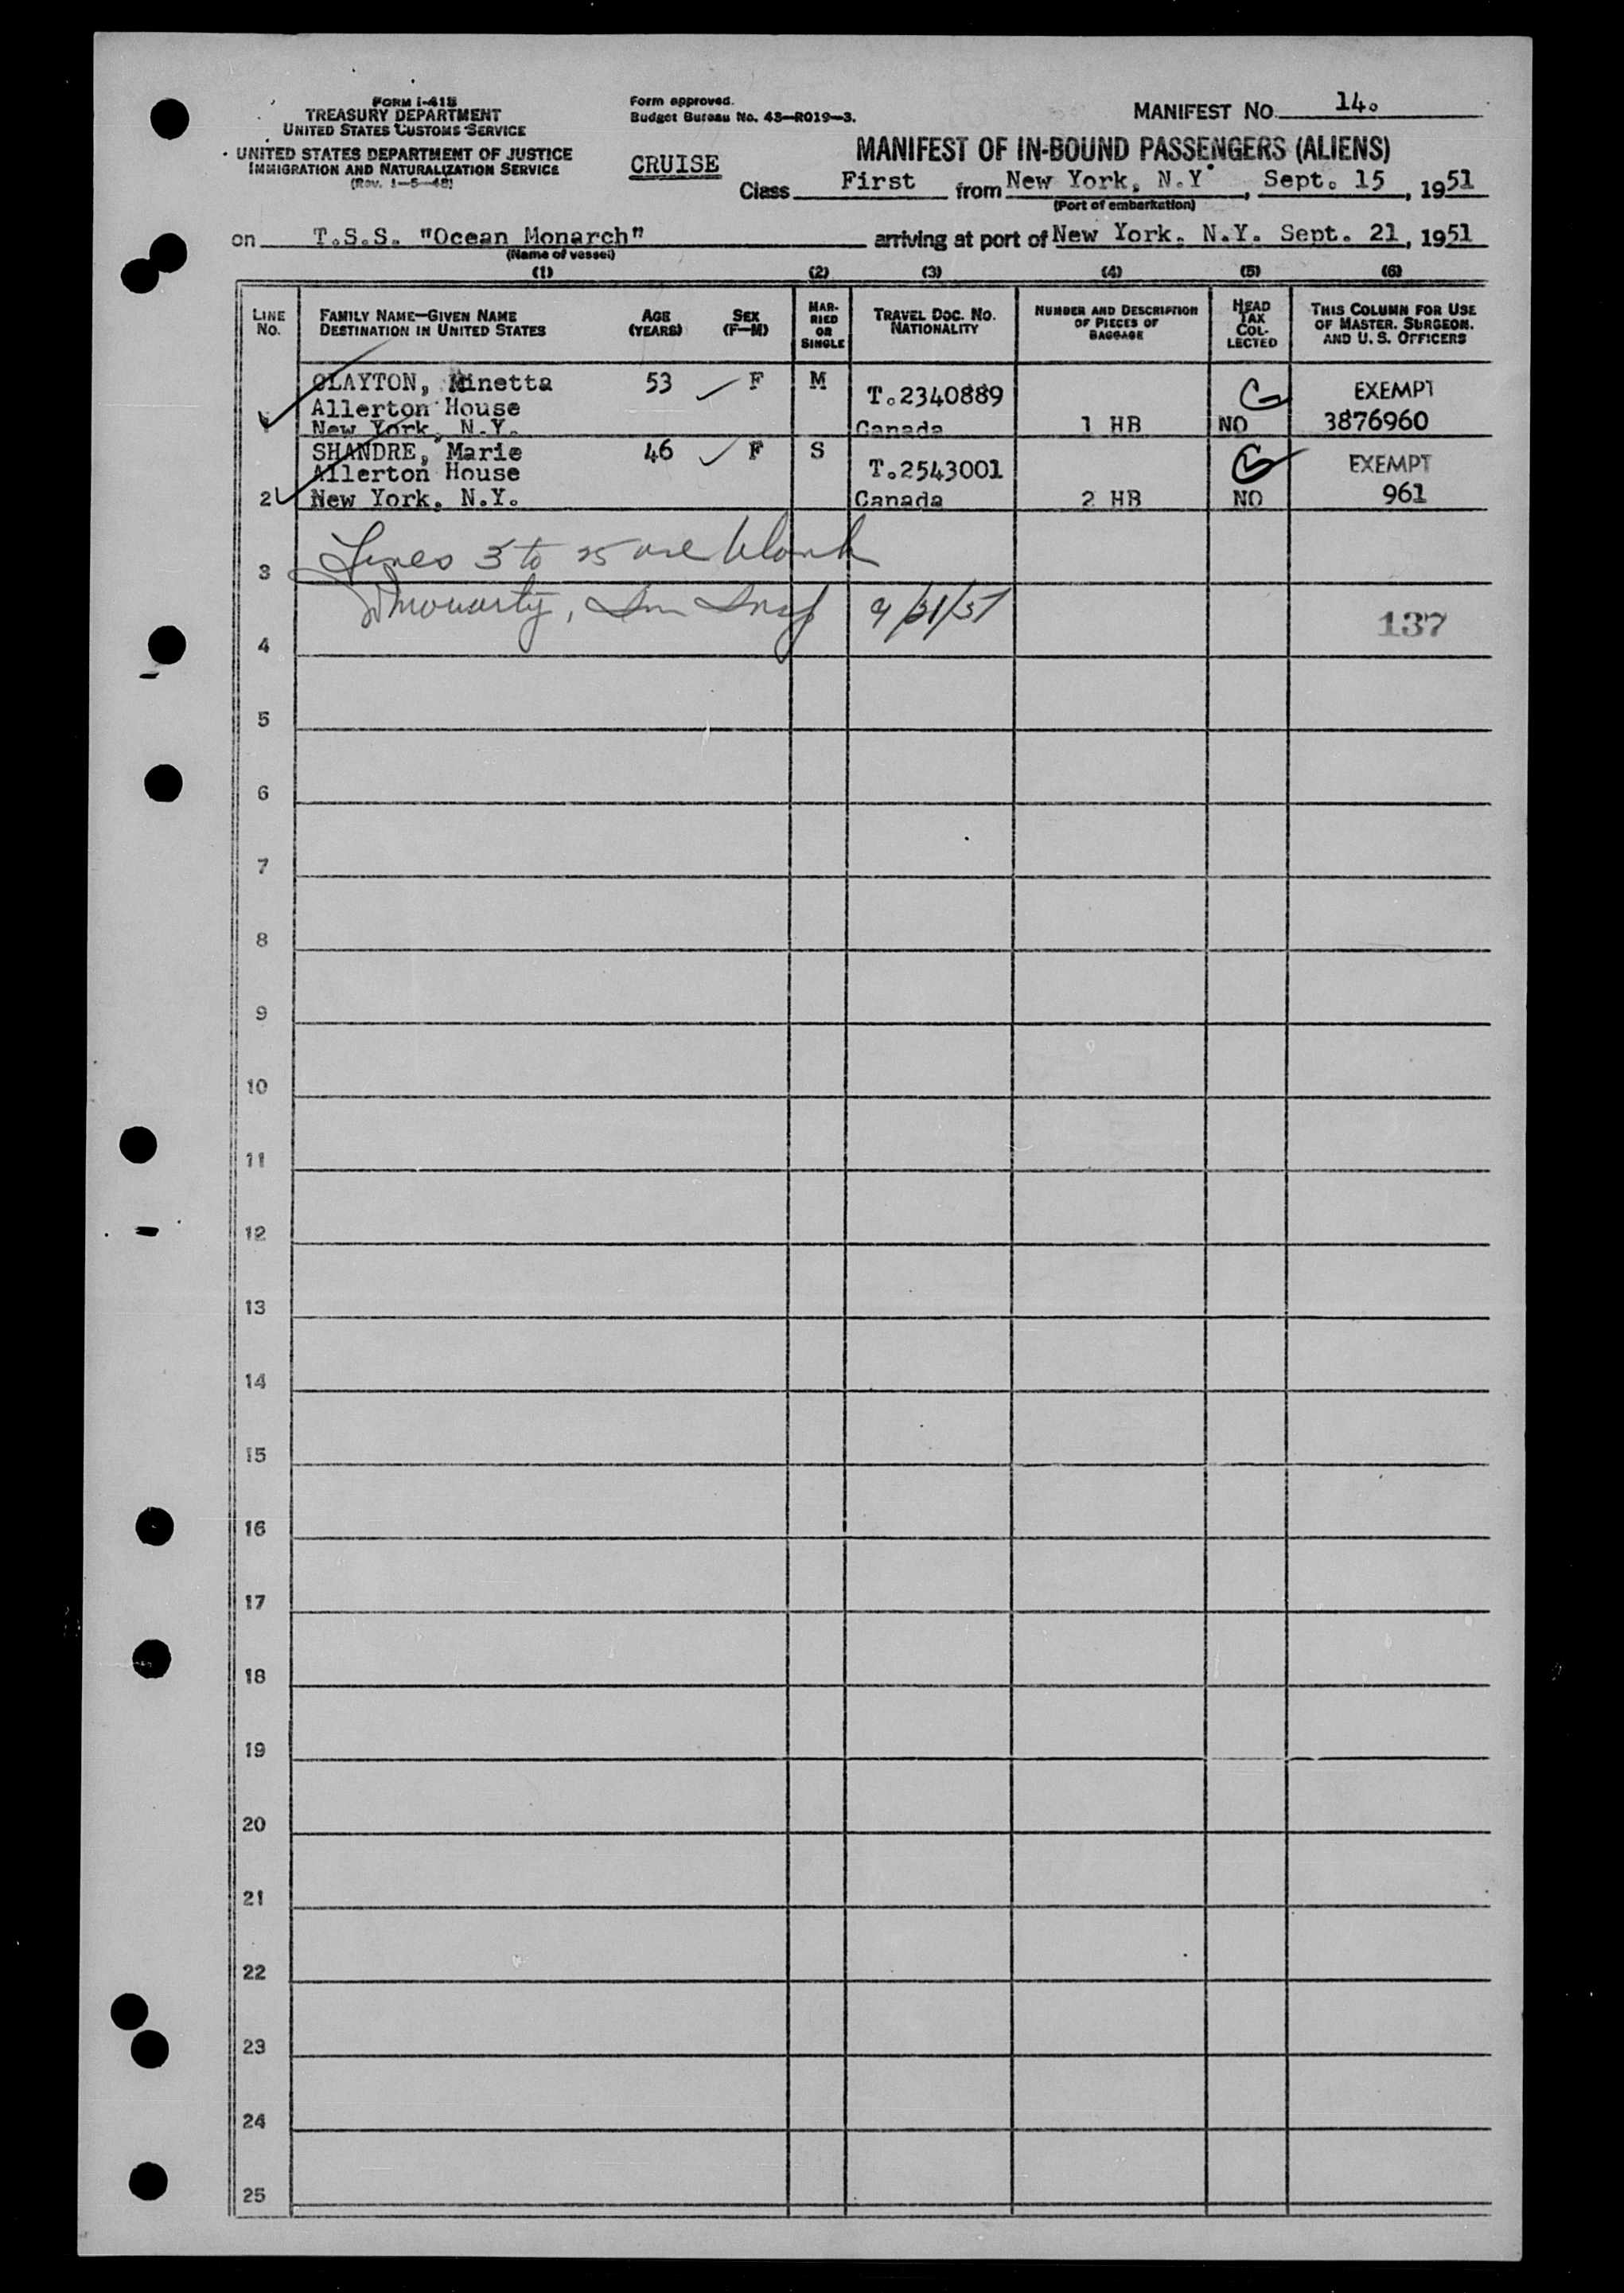 FORM I-418
TREASURY DEPARTMENT
UNITED STATES CUSTOMS SERVICE
UNITED STATES DEPARTMENT OF JUSTICE
IMMIGRATION AND NATURALIZATION SERVICE
(Rev. 1-5-48)
Form approved.
Budget Bureau No. 43-R019-3.
MANIFEST NO. 14.
CRUISE
MANIFEST OF IN-BOUND PASSENGERS (ALIENS)
Class First from New York, N.Y., Sept. 15, 1951
(Port of embarkation)
on T.S.S. "Ocean Monarch" arriving at port of New York. N.Y. Sept. 21, 1951
(Name of vessel)
(1) (2) (3) (4) (5) (6)
LINE NO.
FAMILY NAME-GIVEN NAME
DESTINATION IN UNITED STATES
AGE (YEARS)
SEX (F-M)
MARRIED OR SINGLE
TRAVEL DOC. NO.
NATIONALITY
NUMBER AND DESCRIPTION OF PIECES OF BAGGAGE
HEAD TAX COLLECTED
THIS COLUMN FOR USE OF MASTER. SURGEON. AND U. S. OFFICERS
CLAYTON, Minetta 53 F M T.2340889 EXEMPT
Allerton House
1 New York, N.Y. Canada 1 HB NO 3876960
SHANDRE, Marie 46 F S T.2543001 EXEMPT
Allerton House
2 New York, N.Y. Canada 2 HB NO 961
3 Lines 3 to 25 are blank
4 Moriarty, Im Insp 9/21/51 137
5
6
7
8
9
10
11
12
13
14
15
16
17
18
19
20
21
22
23
24
25